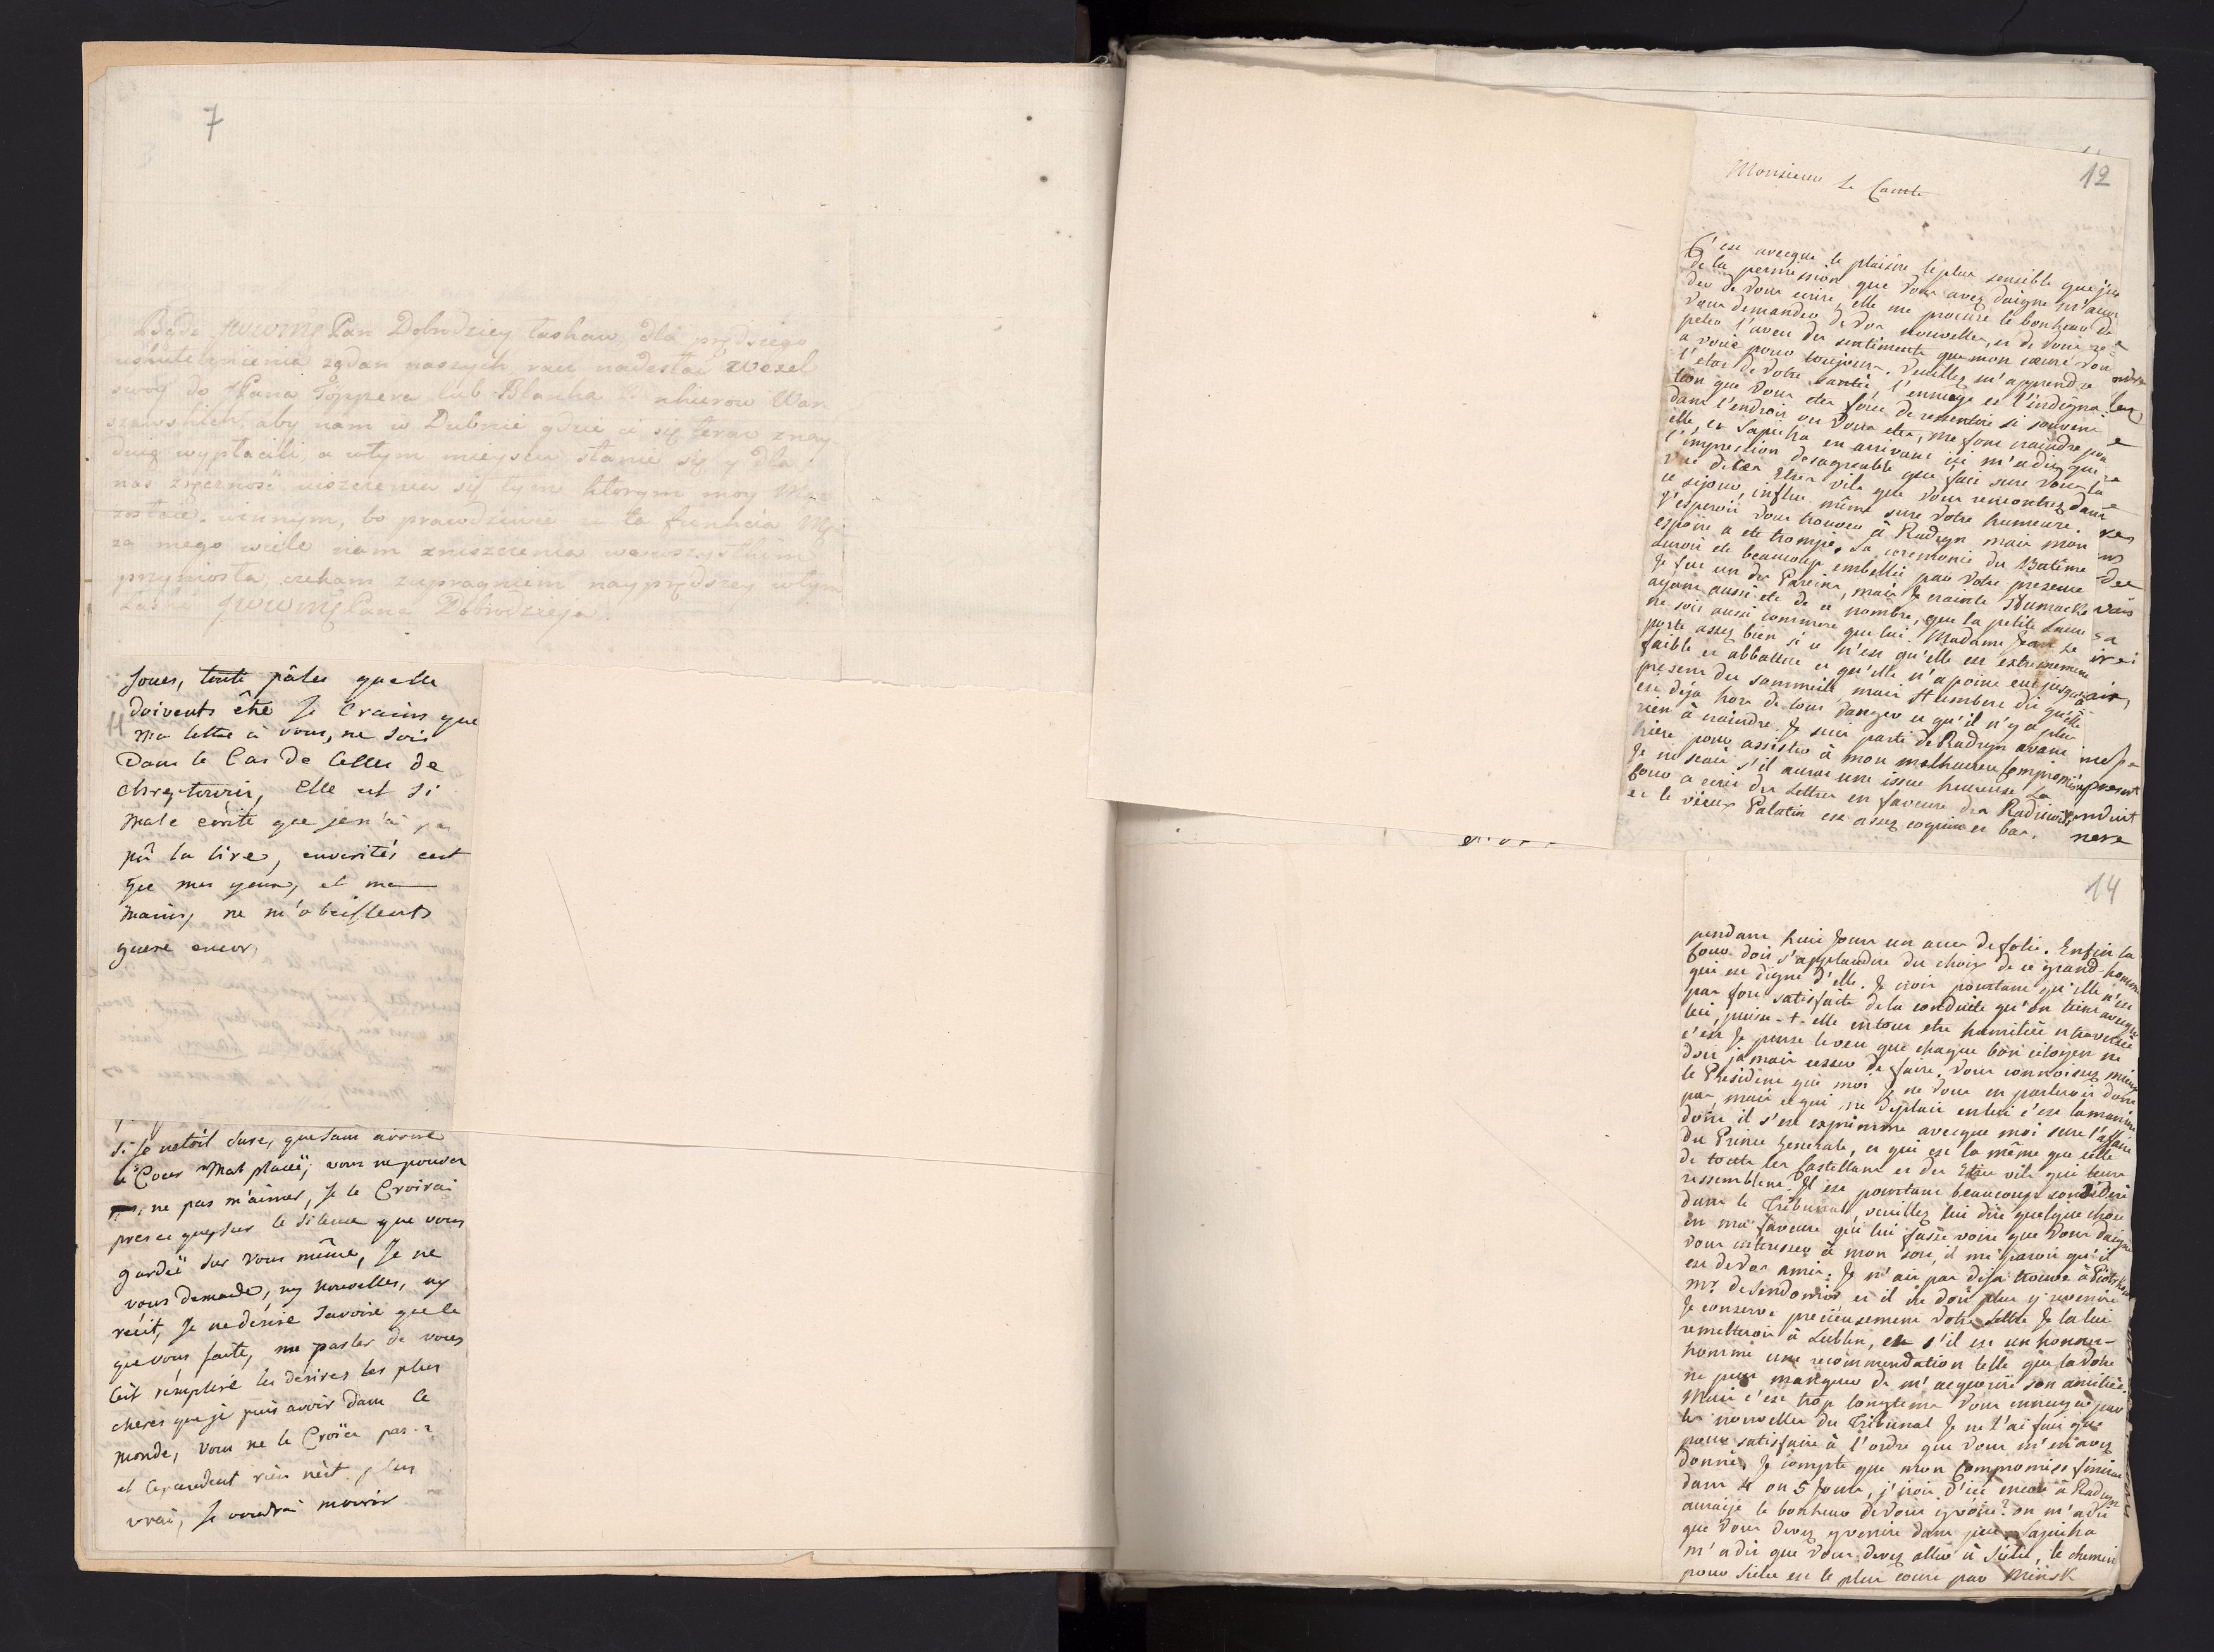 7
Będę JWWMP Pan Dobrodziey łaskaw, dla prędszego
uskutecznienia żądań naszych, racz nadesłać wexel
swoy do JPana Teppera lub Blanka Bankierow War-
szawskich, aby nam w Dubnie gdzie ci się teraz znay-
duią wypłacili, a w tym mieyscu stanie się y dla
nas zręczność uiszczenia się tym ktorym moy Mąż
został winnym, bo prawdziwie ta funkcia Męża
za mego wiele nam zniszczenia we wszystkim
przyniosła, czekam z upragnieniem nayprędszey w tym
Łaski JWWMPana Dobrodzieja.
11
joues, toute pâles quelle
doivents être Je Crains que
ma lettre à vous, ne sois
Dans le Cas de Celles de
Chreptowir, Elle est si
male écrite que je n'ai pas
pû la lire, enverités cest
que mes yeux, et me
mains, ne m'obeissents
guere encor,
si je netoit sure, que sans avoire
le Coeur mal placéé, vous ne pouvez
ne pas m'aimer, Je le Croirai
presce que, sur le silence que vous
gardéé sur vous même, Je ne
vous demade, ny nouvelles, ny
récit, Je ne desire savoire que le
que vous faite, me parler de vous
C'est remplire les desires les plus
cheres que je puis avoir dans le
monde, vous ne le Croïéz pas?
et Cependent rien n'est plus
vrai, Je voudrai mourir
12
Monsieur le Comte
C'est avecque le plaisire le plus sensible que j'use
de la permission que Vous avez daigné m'accor
der de Vous ecrire, elle me procure le bonheur de
Vous demander de Vos nouvelles, et de Vous re
peter l'aveu des sentiments que mon coeur Vous
a voué pour toujours. Veuillez m'apprendre
l'etat de Votre santé, l'ennuye et l'indigna
tion que Vous etes forcé de ressentire si souvent
dans l'endroit ou Vous etes, me font craindre pour
elle, et Sapieha en arrivant ici m'a dit que
l'impression desagreable que fait sure Vous la
vue de ces Etres vils que Vous rencontrez dans
ce sejour, influe même sure Votre humeure.
J'esperois Vous trouver à Radzyn mais mon
espoire a eté trompé, la ceremonie du Batême
auroit eté beaucoup embellie par Votre presence
Je fus un des Pareins, mais je crainte Humacki
ayant aussi eté de ce nombre, que la petite Laure
ne soit aussi commere que lui. Madame Jean se
porte assez bien si ce n'est qu'elle est extremement
faible et abbattue et qu'elle n'a point eue jusqu'à
present du sommeile mais Humbert dit qu'elle
est déja hors de tout danger et qu'il n'y a plus
rien à craindre. Je suis parti de Radzyn avant
hiere pour assister à mon malheureux Compromis
Je ne scais s'il aura une issue heureuse. La
Cour a ecrit des Lettres en faveure des Radziwill
et le vieux Palatin est assez coquin et bas.
14
pendant huit Jours un acces de folie. Enfin la
Cour doit s'applaudire du choix de ce grand-homme
qui est digne d'elle. Je crois pourtant qu'elle n'est
pas fort satisfaite de la conduite qu'on tient avecque
lui, puisse-t-elle en tout etre humiliée et traversée
c'est Je pense le veu que chaque bon citoyen ne
doit jamais cesser de faire. Vous connoissez mieux
le President que moi Je ne Vous en parlerois donc
pas, mais ce qui me deplait en lui c'est la maniere
dont il s'est exprimmé avecque moi sure l'affaire
du Prince General, et qui est la même que celle
de toute les Castellans et des Etres vils qui leurs
ressemblent. Il est pourtant beaucoup consideré
dans le Tribunal, veuillez lui dire quelque chose
en ma faveure qui lui fasse voire que Vous daignez
Vous interesser à mon sort, il me paroit qu'il
est de Vos amis. Je n'ai pas déja trouvé à Piotrkow
mr. de Sendomir et il ne doit plus y revenire
Je conserve precieusement Votre Lettre Je la lui
remetterois à Lublin, et s'il est un honnet-
homme une recommendation telle que la Votre
ne peut manquer de m'acquerire son amitiée.
Mais c'est trop longtems Vous ennuyer par
les nouvelles du Tribunal Je ne l'ai fait que
pour satisfaire à l'ordre que Vous m'en avez
donné. Je compte que mon Compromise finira
dans 4 ou 5 Jours, j'irois d'ici encore à Radzyn
auraije le bonheur de Vous y voire? on m'a dit
que Vous devez y venire dans peu Sapieha
m'a dit que Vous devez aller à Sielce, le chemin
pour Sielce est le plus court par Minsk